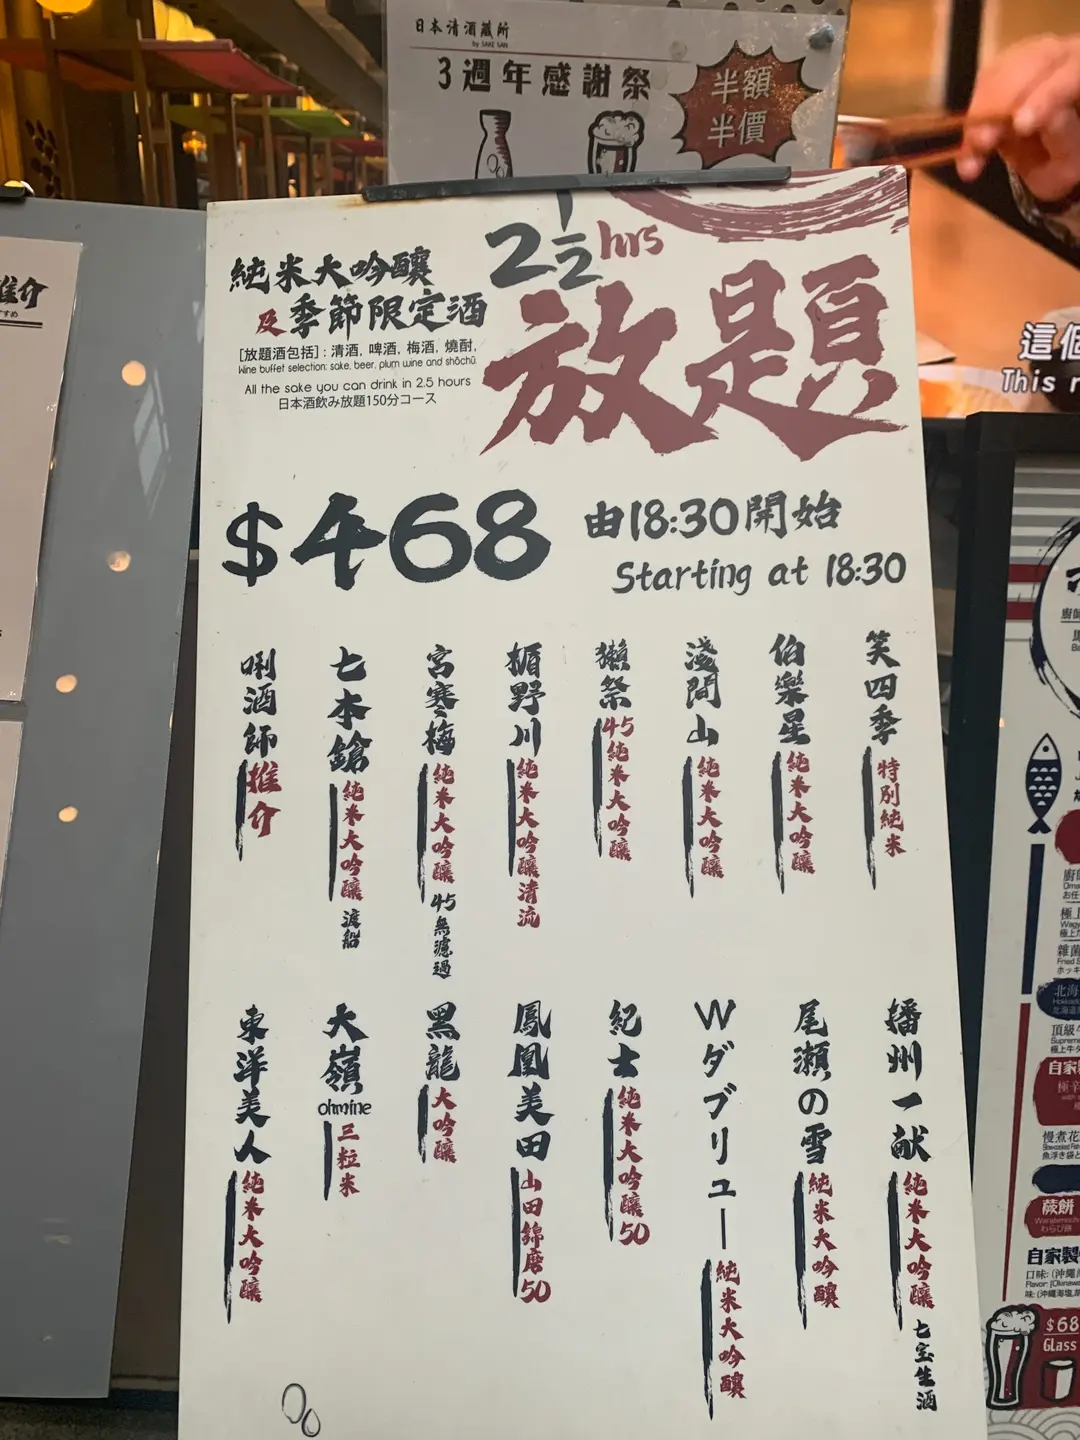 日本清酒蔵所
by SAKE SAN
3週年感謝祭
半額
半價
純米大吟釀
及季節限定酒
2½hrs
放題
[放題酒包括]：清酒, 啤酒, 梅酒, 燒酎,
Wine buffet selection: sake, beer, plum wine and shōchū
All the sake you can drink in 2.5 hours
日本酒飲み放題150分コース
$468
由18:30開始
Starting at 18:30
笑四季 特別純米
伯樂星 純米大吟釀
淺間山 純米大吟釀
獺祭 45純米大吟釀
楯野川 純米大吟釀清流
宮寒梅 純米大吟釀 45 無濾過
七本鎗 純米大吟釀 渡船
唎酒師推介
播州一献 純米大吟釀 七宝生酒
尾瀬の雪 純米大吟釀
Wダブリュー 純米大吟釀
紀士 純米大吟釀50
鳳凰美田 山田錦磨50
黑龍 大吟釀
大嶺 ohmine 三粒米
東洋美人 純米大吟釀
推介
すすめ
這個
This
北海
頂級
自家製
慢煮花
蕨餅
自家製
口味: (沖繩
$68
Glass